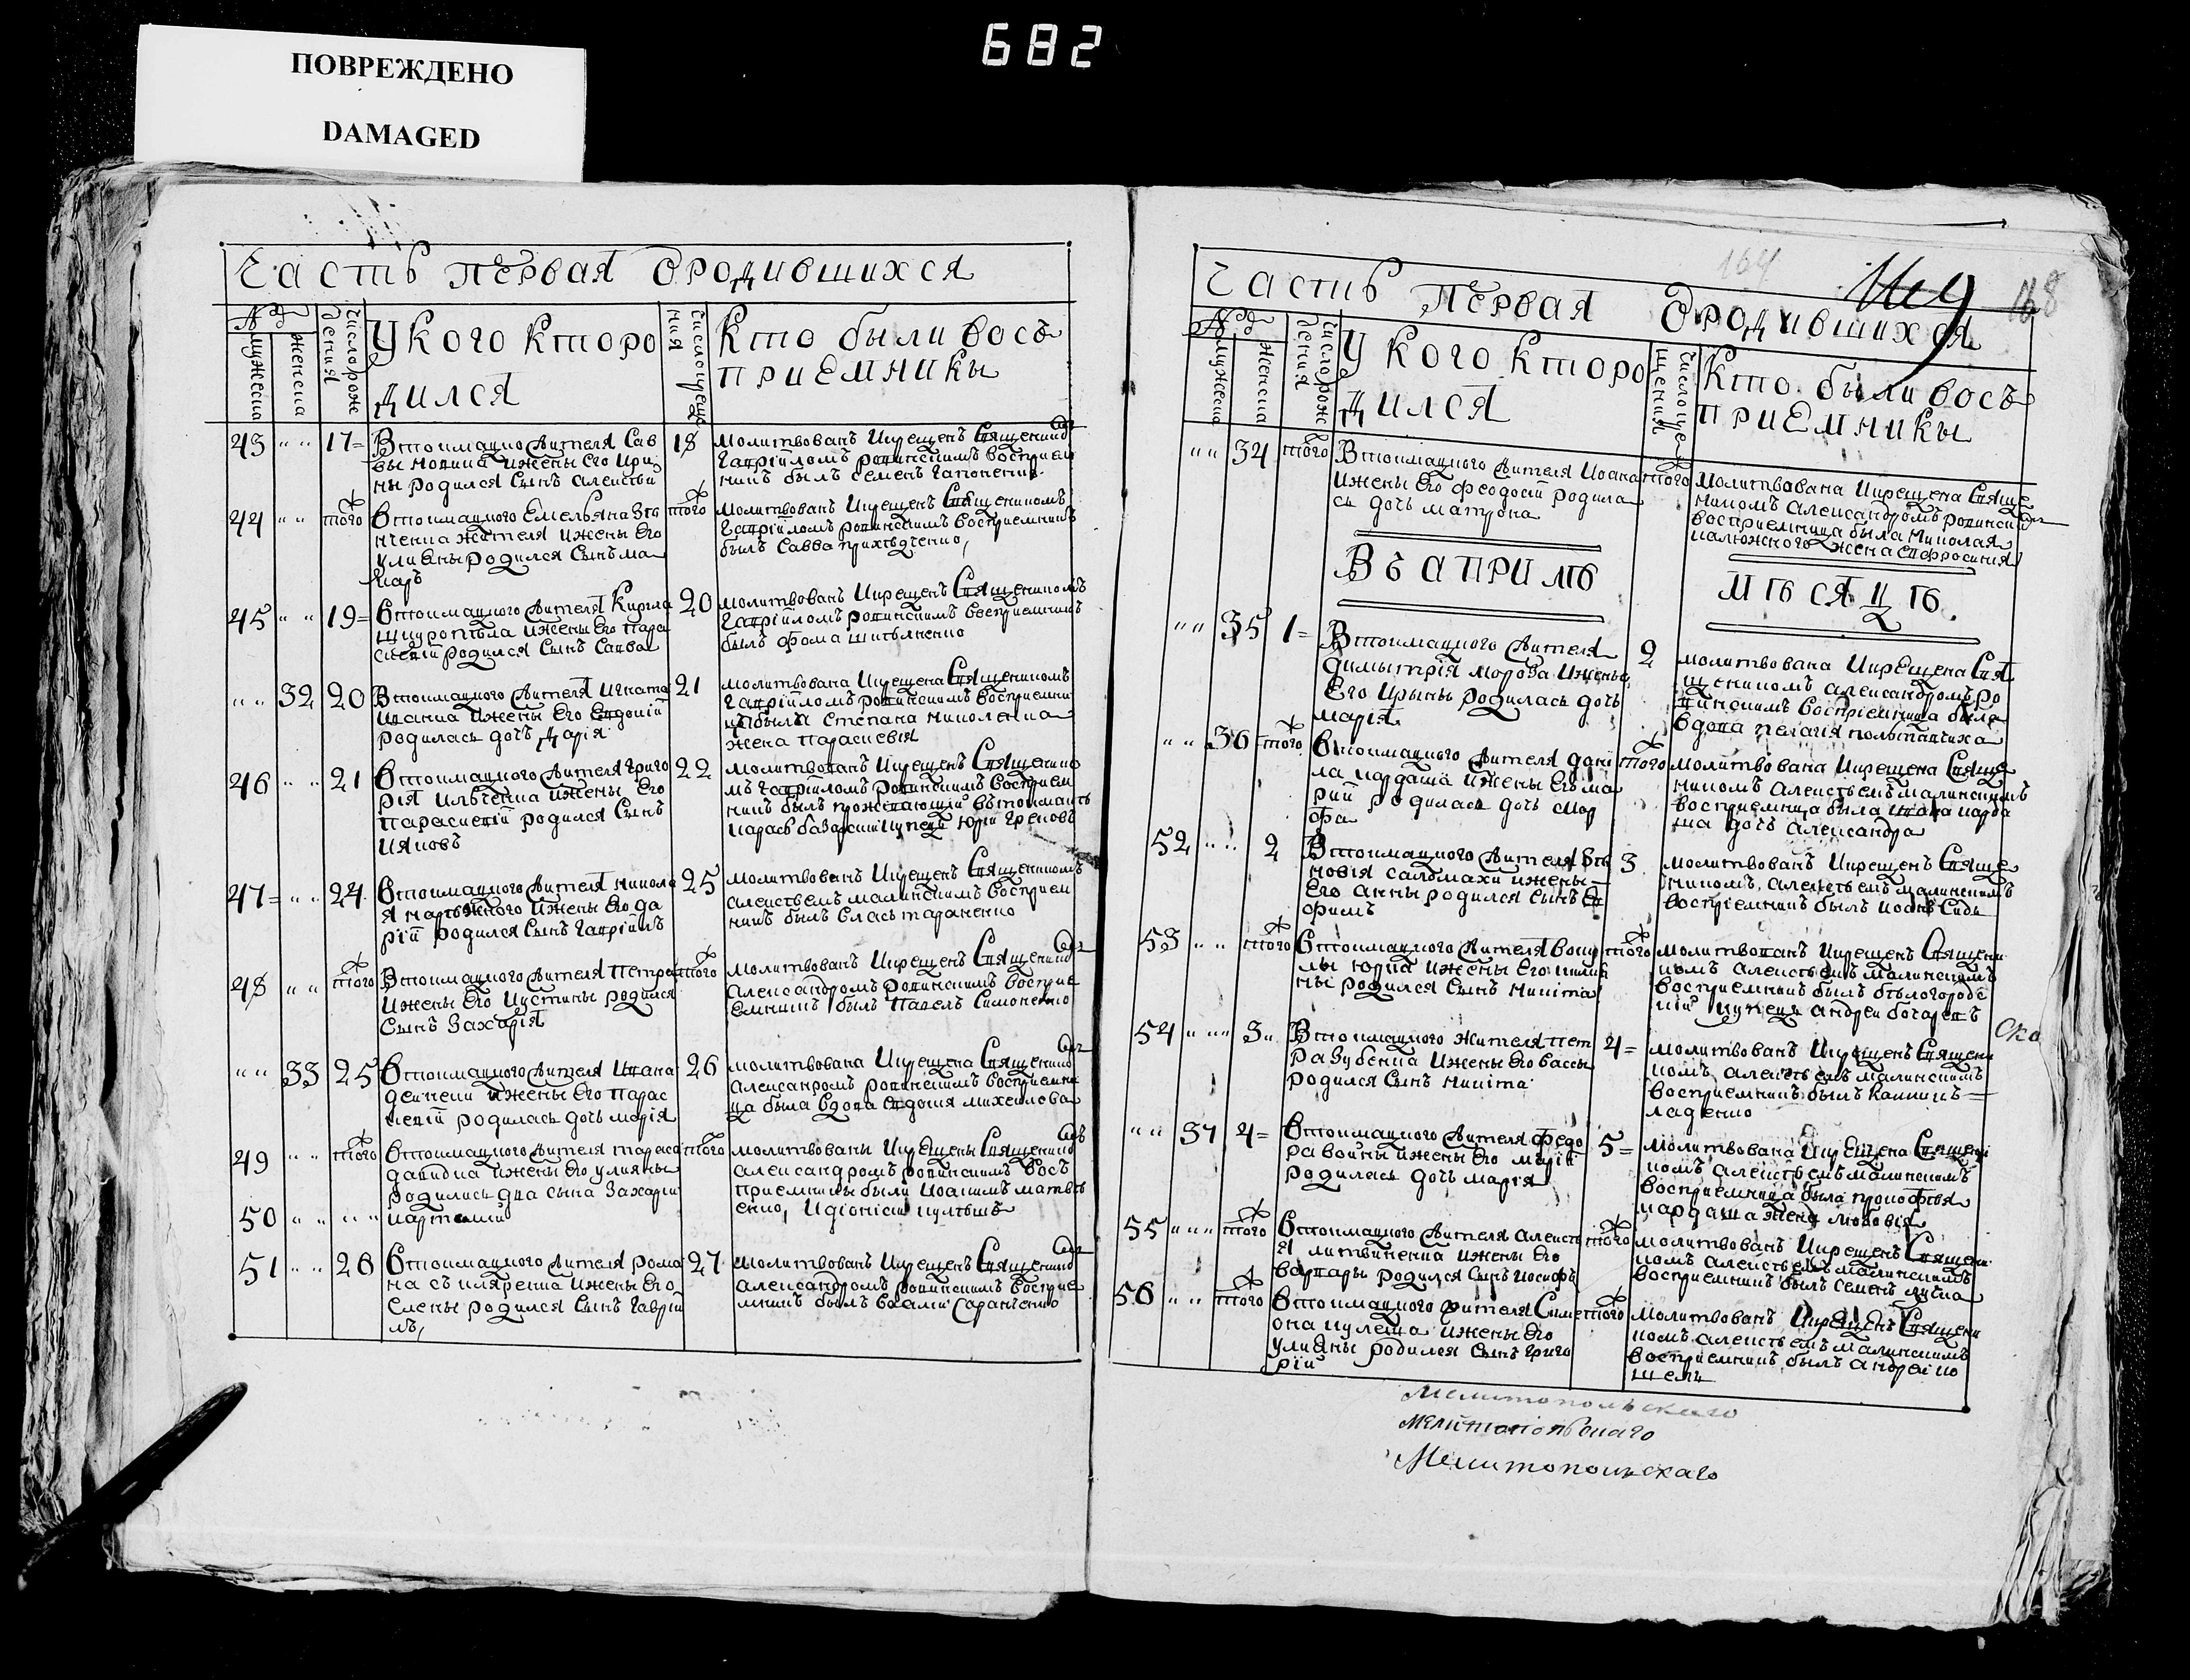 ПОВРЕЖДЕНО
DAMAGED
682
Часть первая ородившихся
№
мужеска
женска
число рож
дения
У кого кторо
дился
число креще
ния
Кто были восъ
приемники
43 " " 17 =
Втокмацко жителя Сав
вы ижены его Ири
ны родился Сынъ алексѣй
18
молитвованъ Икрещенъ Священико
Гаврїиломъ ровинскимъ восприем
никъ былъ Семенъ Гапоненко
44 " " того
Втокмацкого Емельяна Зѣ
нченка жителя ижены Его
улияны родился Сынъ ма
каръ
того
молитвованъ Икрещенъ Священикомъ
Гаврїиломъ ровинскимъ восприемникъ
былъ Савва прихѣдченко
45 " " 19 =
Втокмацкого жителя Кирила
ижены Его Парас
кевїи родился Сынъ Савва
20
молитвованъ Икрещенъ Священикомъ
Гаврїиломъ ровинскимъ восприемникъ
былъ фома
" " 32 20
Втокмацкого жителя Игната
Иванка ижены Его Евдокїи
родилась дочь Дарїя
21
молитвована Икрещена Священикомъ
Гаврїиломъ ровинскимъ восприемни
ца была Степана Николенка
жена параскевїя
46 " " 21
Втокмацкого жителя Григо
рїя Ильченка ижены Его
Параскевїи родился Сынъ
Ияковъ
22
молитвованъ Икрещенъ Священико
мъ Гаврїиломъ ровинскимъ восприем
никъ былъ прожевающїй вътокмакѣ
карасъбазарскїй купецъ Юрїй Грековъ
47 = " " 24
Втокмацкого жителя никола
я ижены Его да
рїи родился Сынъ Гаврїилъ
25
молитвованъ Икрещенъ Священикомъ
алексѣемъ малинскимъ восприем
никъ былъ власъ тараненко
48 " " того
Втокмацкого жителя петра
ижены Его Иустины родился
Сынъ Захарїя
того
молитвованъ Икрещенъ Священико
александромъ ровинскимъ восприе
емникъ былъ Павелъ Симоненко
" " 33 25
Втокмацкого жителя Ивана
ижены Его Парас
кевїи родилась дочь марїя
26
молитвована Икрещена Священико
александромъ ровинскимъ восприемни
ца была вдова Евдокия михайлова
49 " " того
Втокмацкого жителя тараса
давидка ижены Его улияны
родились два сына Захарїи
50 " " " "
того
молитвованы Икрещены Священико
александромъ ровинскимъ восъ
приемники были Иоакимъ матвѣ
енко, Идїонїсїй кулѣшъ
51 " " 26
Втокмацкого жителя рома
на ижены Его
Елены родился Сынъ Гаврїи
лъ,
27
молитвованъ Икрещенъ Священико
александромъ ровинскимъ восприе
мникъ былъ Саранченко
164
168
Часть первая ородившихся
№
мужеска
женска
число рож
дения
У кого кторо
дился
число кре
щения
Кто были восъ
приемники
" " 34 того
Втокмацкого жителя Иоана
ижены Его феодосїи родила
сь дочь матрона
того
молитвована Икрещена Священ
никомъ александромъ ровински
восприемница была николая
жена Евфросинїя
Въ априлѣ
мѣсяцѣ
" " 35 1 =
Втокмацкого жителя
димытрїя мороза ижены
Его Ирыны родилась дочь
марїя
2
молитвована Икрещена Свя
щеникомъ александромъ ро
винскимъ воспрїемница была
вдова пелагїя
" " 36 того
Втокмацкого жителя дани
ла кардаша ижены Его ма
рїи родилась дочь мар
фа
того
молитвована Икрещена Свяще
никомъ алексѣемъ малинскимъ
восприемница была Ивана карда
ша дочь александра
52 " " 2
Втокмацкого жителя Зѣ
новїя саломахи ижены
Его анны родился Сынъ Еф
фимъ
3
молитвованъ Икрещенъ Свяще
никомъ алексѣемъ малинскимъ
воспрїемникъ былъ Иоанъ
53 " " того
Втокмацкого жителя
ижены Его
ны родился Сынъ никита
того
молитвованъ Икрещенъ Священи
комъ алексѣемъ малинскимъ
восприемникъ былъ бѣлогородс
кїй купецъ андрей
54 " " 3
Втокмацкого жителя пет
ра Зубенка ижены Его вассы
родился Сынъ никита
4 =
молитвованъ Икрещенъ Священи
комъ алексѣемъ малинскимъ
восприемникъ былъ
ладенко
" " 37 4 =
Втокмацкого жителя федо
ра войны ижены Его марїи
родилась дочь марїя
5 =
молитвована Икрещена Священи
комъ алексѣемъ малинскимъ
восприемница была прокофїя
кардаша жена
55 " " того
Втокмацкого жителя алексѣ
я литвиненка ижены Его
варвары родился Сынъ Иосифъ
того
молитвованъ Икрещенъ Священи
комъ алексѣемъ малинскимъ
восприемникъ былъ Семенъ
56 " " того
Втокмацкого жителя Симе
она кулеша ижены Его
улияны родился Сынъ григо
рїй
того
молитвованъ Икрещенъ Священи
комъ алексѣемъ малинскимъ
восприемникъ былъ андрей ко
шель
Мелитопольскаго
Мелитопольскаго
Мелитопольскаго